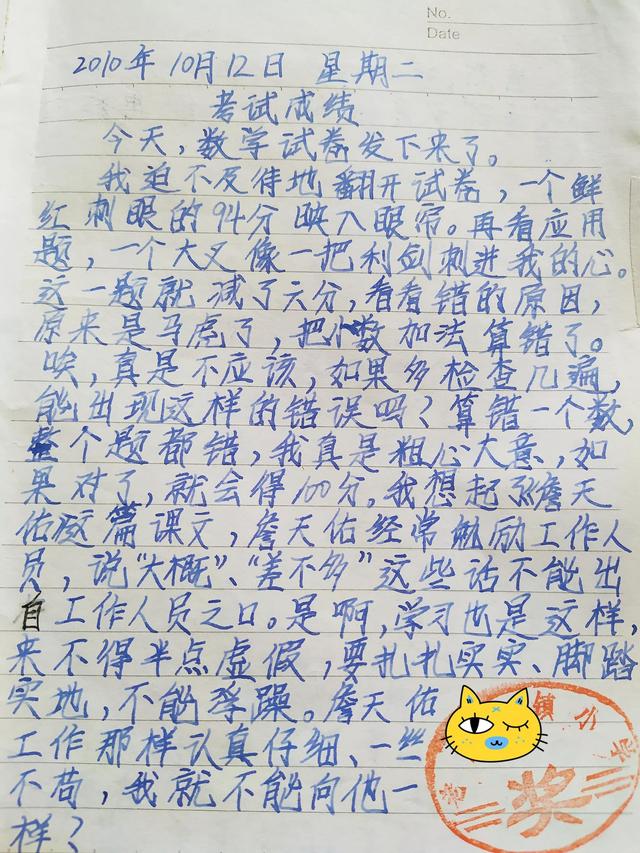 No.
Date
2010年10月12日 星期二
考试成绩
今天,数学试卷发下来了。
我迫不及待地翻开试卷,一个鲜
红刺眼的94分映入眼帘。再看应用
题,一个大叉像一把利剑刺进我的心。
这一题就减了六分,看看错的原因,
原来是马虎了,把小数加法算错了。
唉,真是不应该,如果多检查几遍,
能出现这样的错误吗?算错一个数,
整个题都错,我真是粗心大意,如
果对了,就会得100分。我想起了詹天
佑这篇课文,詹天佑经常勉励工作人
员,说“大概”、“差不多”这些话不能出
自工作人员之口。是啊,学习也是这样,
来不得半点虚假,要扎扎实实、脚踏
实地,不能浮躁。詹天佑
工作那样认真仔细、一丝
不苟,我就不能向他一
样?
镇
奖